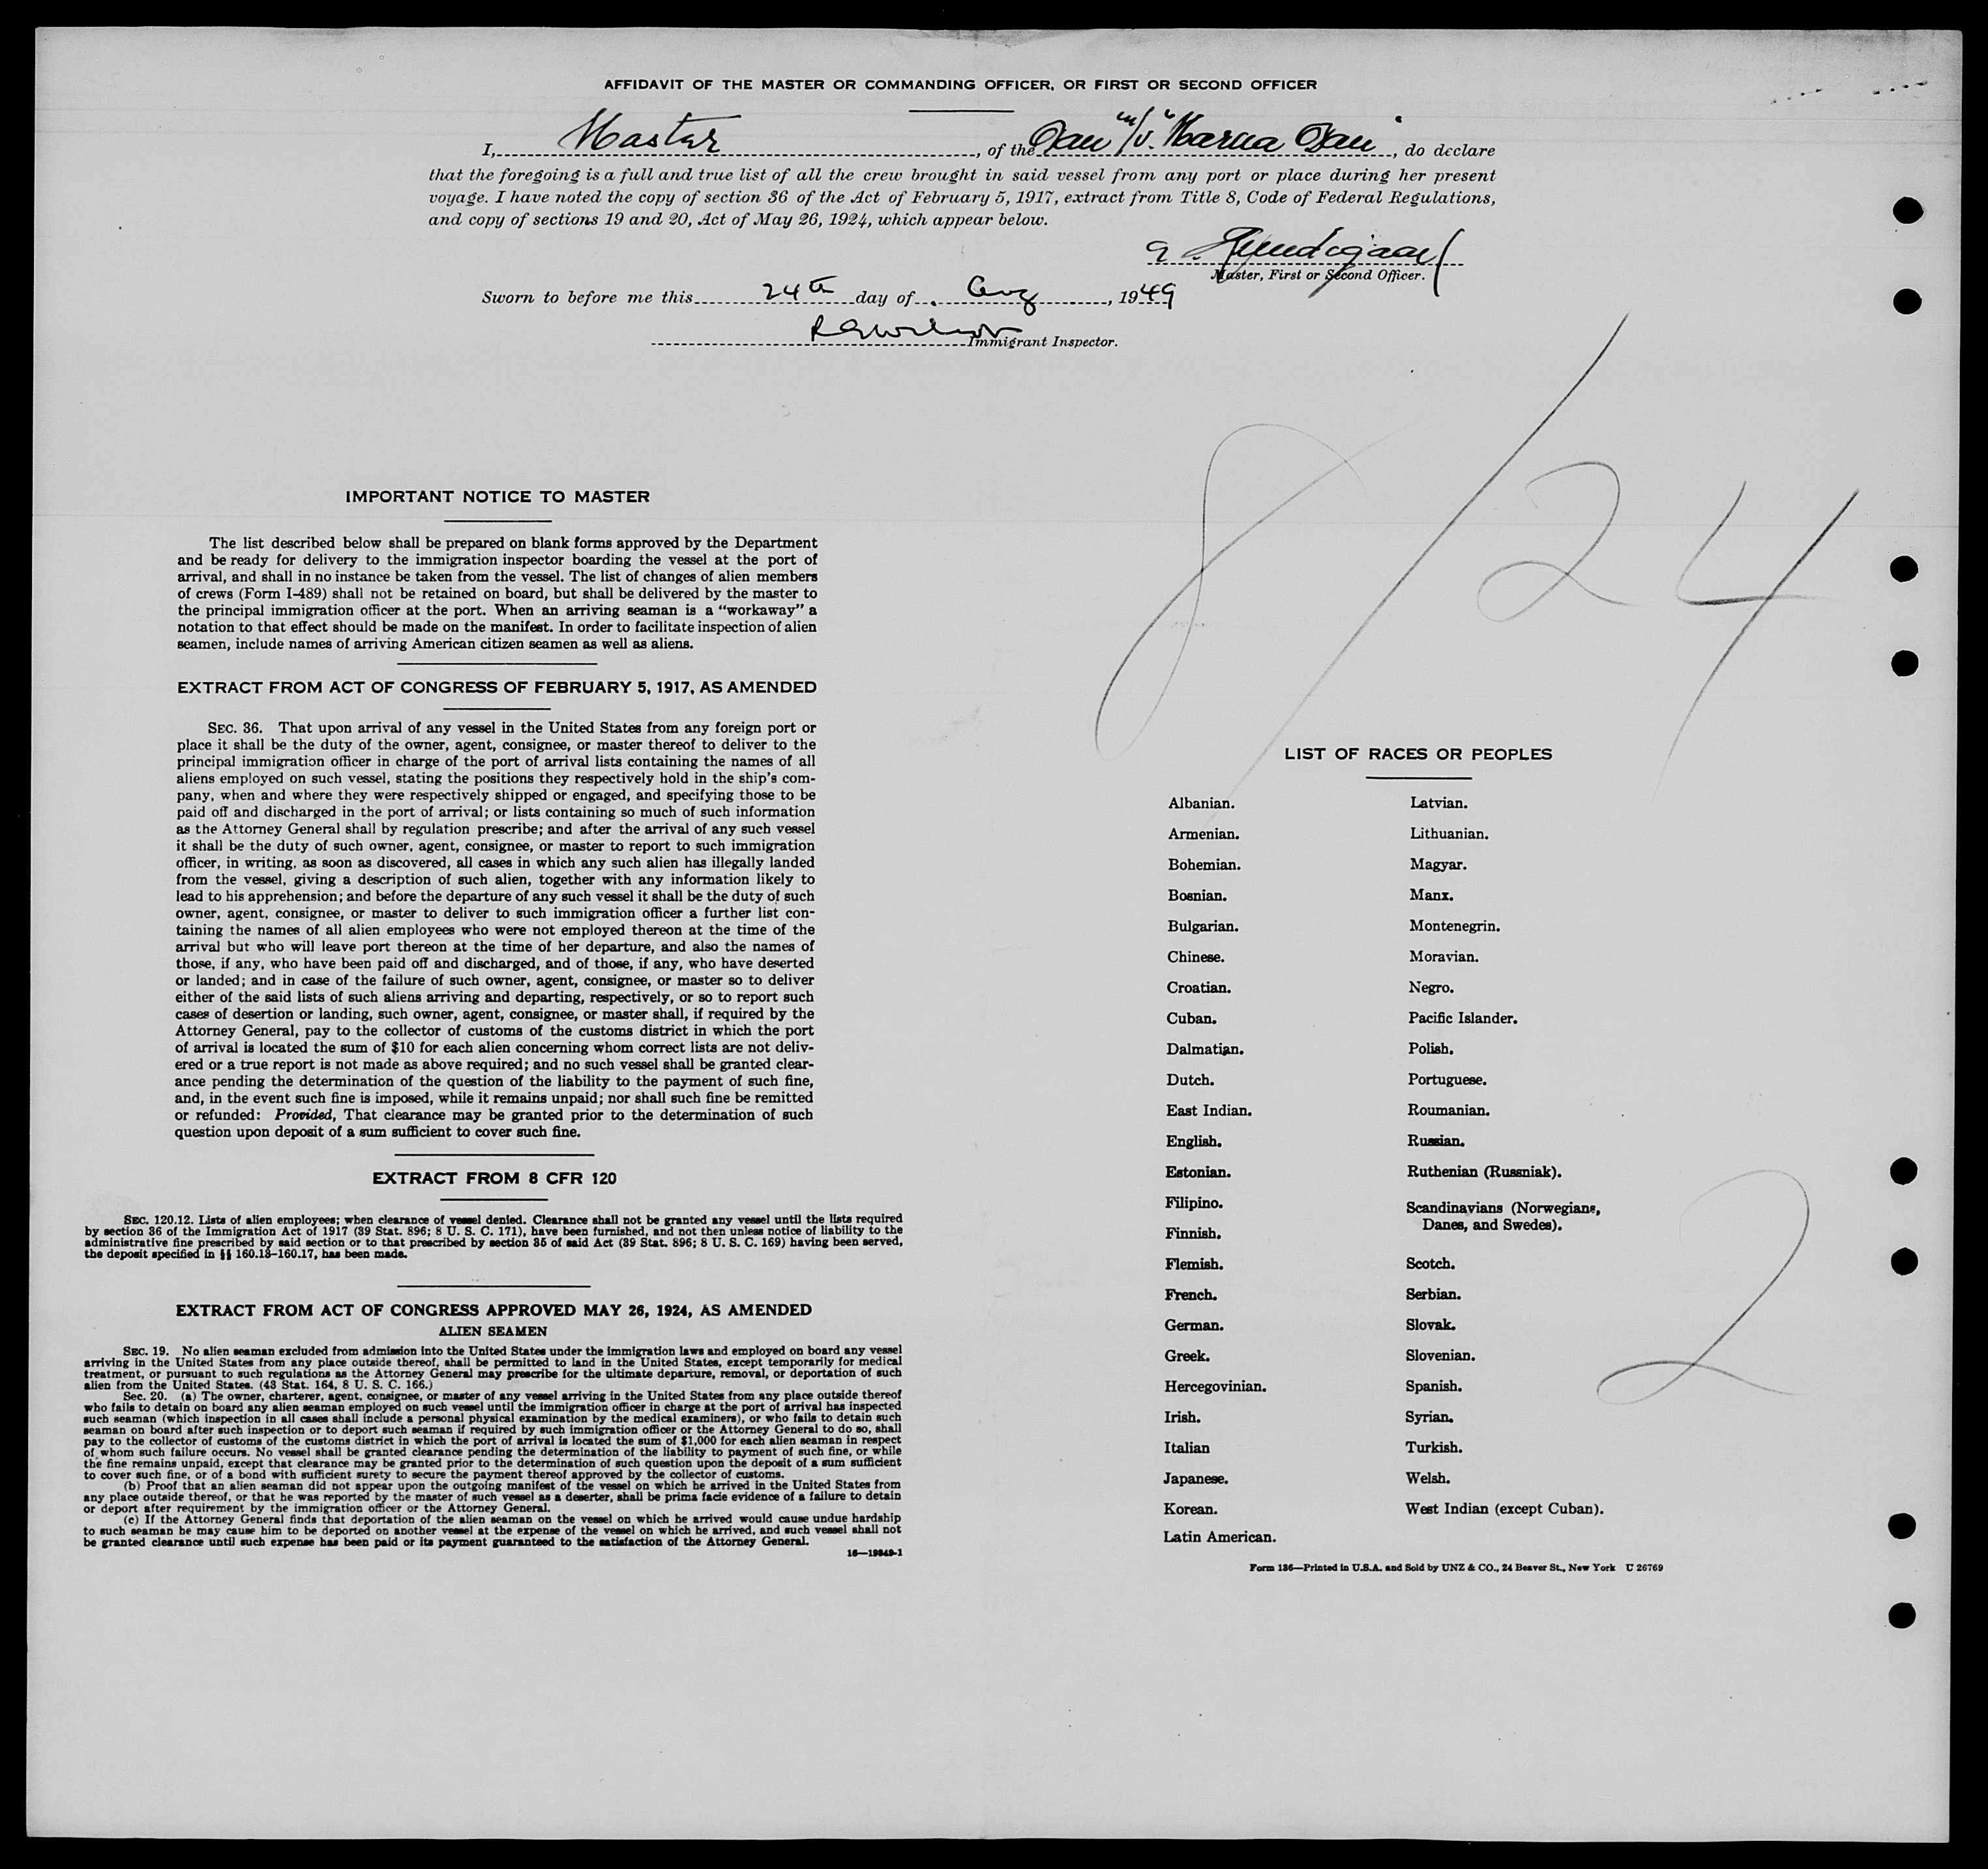 AFFIDAVIT OF THE MASTER OR COMMANDING OFFICER, OR FIRST OR SECOND OFFICER
I, Master, of the Dan m/v. "Karna Dan", do declare
that the foregoing is a full and true list of all the crew brought in said vessel from any port or place during her present
voyage. I have noted the copy of section 36 of the Act of February 5, 1917, extract from Title 8, Code of Federal Regulations,
and copy of sections 19 and 20, Act of May 26, 1924, which appear below.
Master, First or Second Officer.
Sworn to before me this 24th day of Aug, 1949
Immigrant Inspector.
8/24
IMPORTANT NOTICE TO MASTER
The list described below shall be prepared on blank forms approved by the Department
and be ready for delivery to the immigration inspector boarding the vessel at the port of
arrival, and shall in no instance be taken from the vessel. The list of changes of alien members
of crews (Form I-489) shall not be retained on board, but shall be delivered by the master to
the principal immigration officer at the port. When an arriving seaman is a "workaway" a
notation to that effect should be made on the manifest. In order to facilitate inspection of alien
seamen, include names of arriving American citizen seamen as well as aliens.
EXTRACT FROM ACT OF CONGRESS OF FEBRUARY 5, 1917, AS AMENDED
SEC. 36. That upon arrival of any vessel in the United States from any foreign port or
place it shall be the duty of the owner, agent, consignee, or master thereof to deliver to the
principal immigration officer in charge of the port of arrival lists containing the names of all
aliens employed on such vessel, stating the positions they respectively hold in the ship's com-
pany, when and where they were respectively shipped or engaged, and specifying those to be
paid off and discharged in the port of arrival; or lists containing so much of such information
as the Attorney General shall by regulation prescribe; and after the arrival of any such vessel
it shall be the duty of such owner, agent, consignee, or master to report to such immigration
officer, in writing, as soon as discovered, all cases in which any such alien has illegally landed
from the vessel, giving a description of such alien, together with any information likely to
lead to his apprehension; and before the departure of any such vessel it shall be the duty of such
owner, agent, consignee, or master to deliver to such immigration officer a further list con-
taining the names of all alien employees who were not employed thereon at the time of the
arrival but who will leave port thereon at the time of her departure, and also the names of
those, if any, who have been paid off and discharged, and of those, if any, who have deserted
or landed; and in case of the failure of such owner, agent, consignee, or master so to deliver
either of the said lists of such aliens arriving and departing, respectively, or so to report such
cases of desertion or landing, such owner, agent, consignee, or master shall, if required by the
Attorney General, pay to the collector of customs of the customs district in which the port
of arrival is located the sum of $10 for each alien concerning whom correct lists are not deliv-
ered or a true report is not made as above required; and no such vessel shall be granted clear-
ance pending the determination of the question of the liability to the payment of such fine,
and, in the event such fine is imposed, while it remains unpaid; nor shall such fine be remitted
or refunded: Provided, That clearance may be granted prior to the determination of such
question upon deposit of a sum sufficient to cover such fine.
EXTRACT FROM 8 CFR 120
SEC. 120.12. Lists of alien employees; when clearance of vessel denied. Clearance shall not be granted any vessel until the lists required
by section 36 of the Immigration Act of 1917 (39 Stat. 896; 8 U. S. C. 171), have been furnished, and not then unless notice of liability to the
administrative fine prescribed by said section or to that prescribed by section 35 of said Act (39 Stat. 896; 8 U. S. C. 169) having been served,
the deposit specified in §§ 160.13-160.17, has been made.
EXTRACT FROM ACT OF CONGRESS APPROVED MAY 26, 1924, AS AMENDED
ALIEN SEAMEN
SEC. 19. No alien seaman excluded from admission into the United States under the immigration laws and employed on board any vessel
arriving in the United States from any place outside thereof, shall be permitted to land in the United States, except temporarily for medical
treatment, or pursuant to such regulations as the Attorney General may prescribe for the ultimate departure, removal, or deportation of such
alien from the United States. (43 Stat. 164, 8 U. S. C. 166.)
Sec. 20. (a) The owner, charterer, agent, consignee, or master of any vessel arriving in the United States from any place outside thereof
who fails to detain on board any alien seaman employed on such vessel until the immigration officer in charge at the port of arrival has inspected
such seaman (which inspection in all cases shall include a personal physical examination by the medical examiners), or who fails to detain such
seaman on board after such inspection or to deport such seaman if required by such immigration officer or the Attorney General to do so, shall
pay to the collector of customs of the customs district in which the port of arrival is located the sum of $1,000 for each alien seaman in respect
of whom such failure occurs. No vessel shall be granted clearance pending the determination of the liability to payment of such fine, or while
the fine remains unpaid, except that clearance may be granted prior to the determination of such question upon the deposit of a sum sufficient
to cover such fine, or of a bond with sufficient surety to secure the payment thereof approved by the collector of customs.
(b) Proof that an alien seaman did not appear upon the outgoing manifest of the vessel on which he arrived in the United States from
any place outside thereof, or that he was reported by the master of such vessel as a deserter, shall be prima facie evidence of a failure to detain
or deport after requirement by the immigration officer or the Attorney General.
(c) If the Attorney General finds that deportation of the alien seaman on the vessel on which he arrived would cause undue hardship
to such seaman he may cause him to be deported on another vessel at the expense of the vessel on which he arrived, and such vessel shall not
be granted clearance until such expense has been paid or its payment guaranteed to the satisfaction of the Attorney General.
16—19849-1
LIST OF RACES OR PEOPLES
Albanian.
Armenian.
Bohemian.
Bosnian.
Bulgarian.
Chinese.
Croatian.
Cuban.
Dalmatian.
Dutch.
East Indian.
English.
Estonian.
Filipino.
Finnish.
Flemish.
French.
German.
Greek.
Hercegovinian.
Irish.
Italian
Japanese.
Korean.
Latin American.
Latvian.
Lithuanian.
Magyar.
Manx.
Montenegrin.
Moravian.
Negro.
Pacific Islander.
Polish.
Portuguese.
Roumanian.
Russian.
Ruthenian (Russniak).
Scandinavians (Norwegians,
Danes, and Swedes).
Scotch.
Serbian.
Slovak.
Slovenian.
Spanish.
Syrian.
Turkish.
Welsh.
West Indian (except Cuban).
2
Form 136—Printed in U.S.A. and Sold by UNZ & CO., 24 Beaver St., New York U 26769